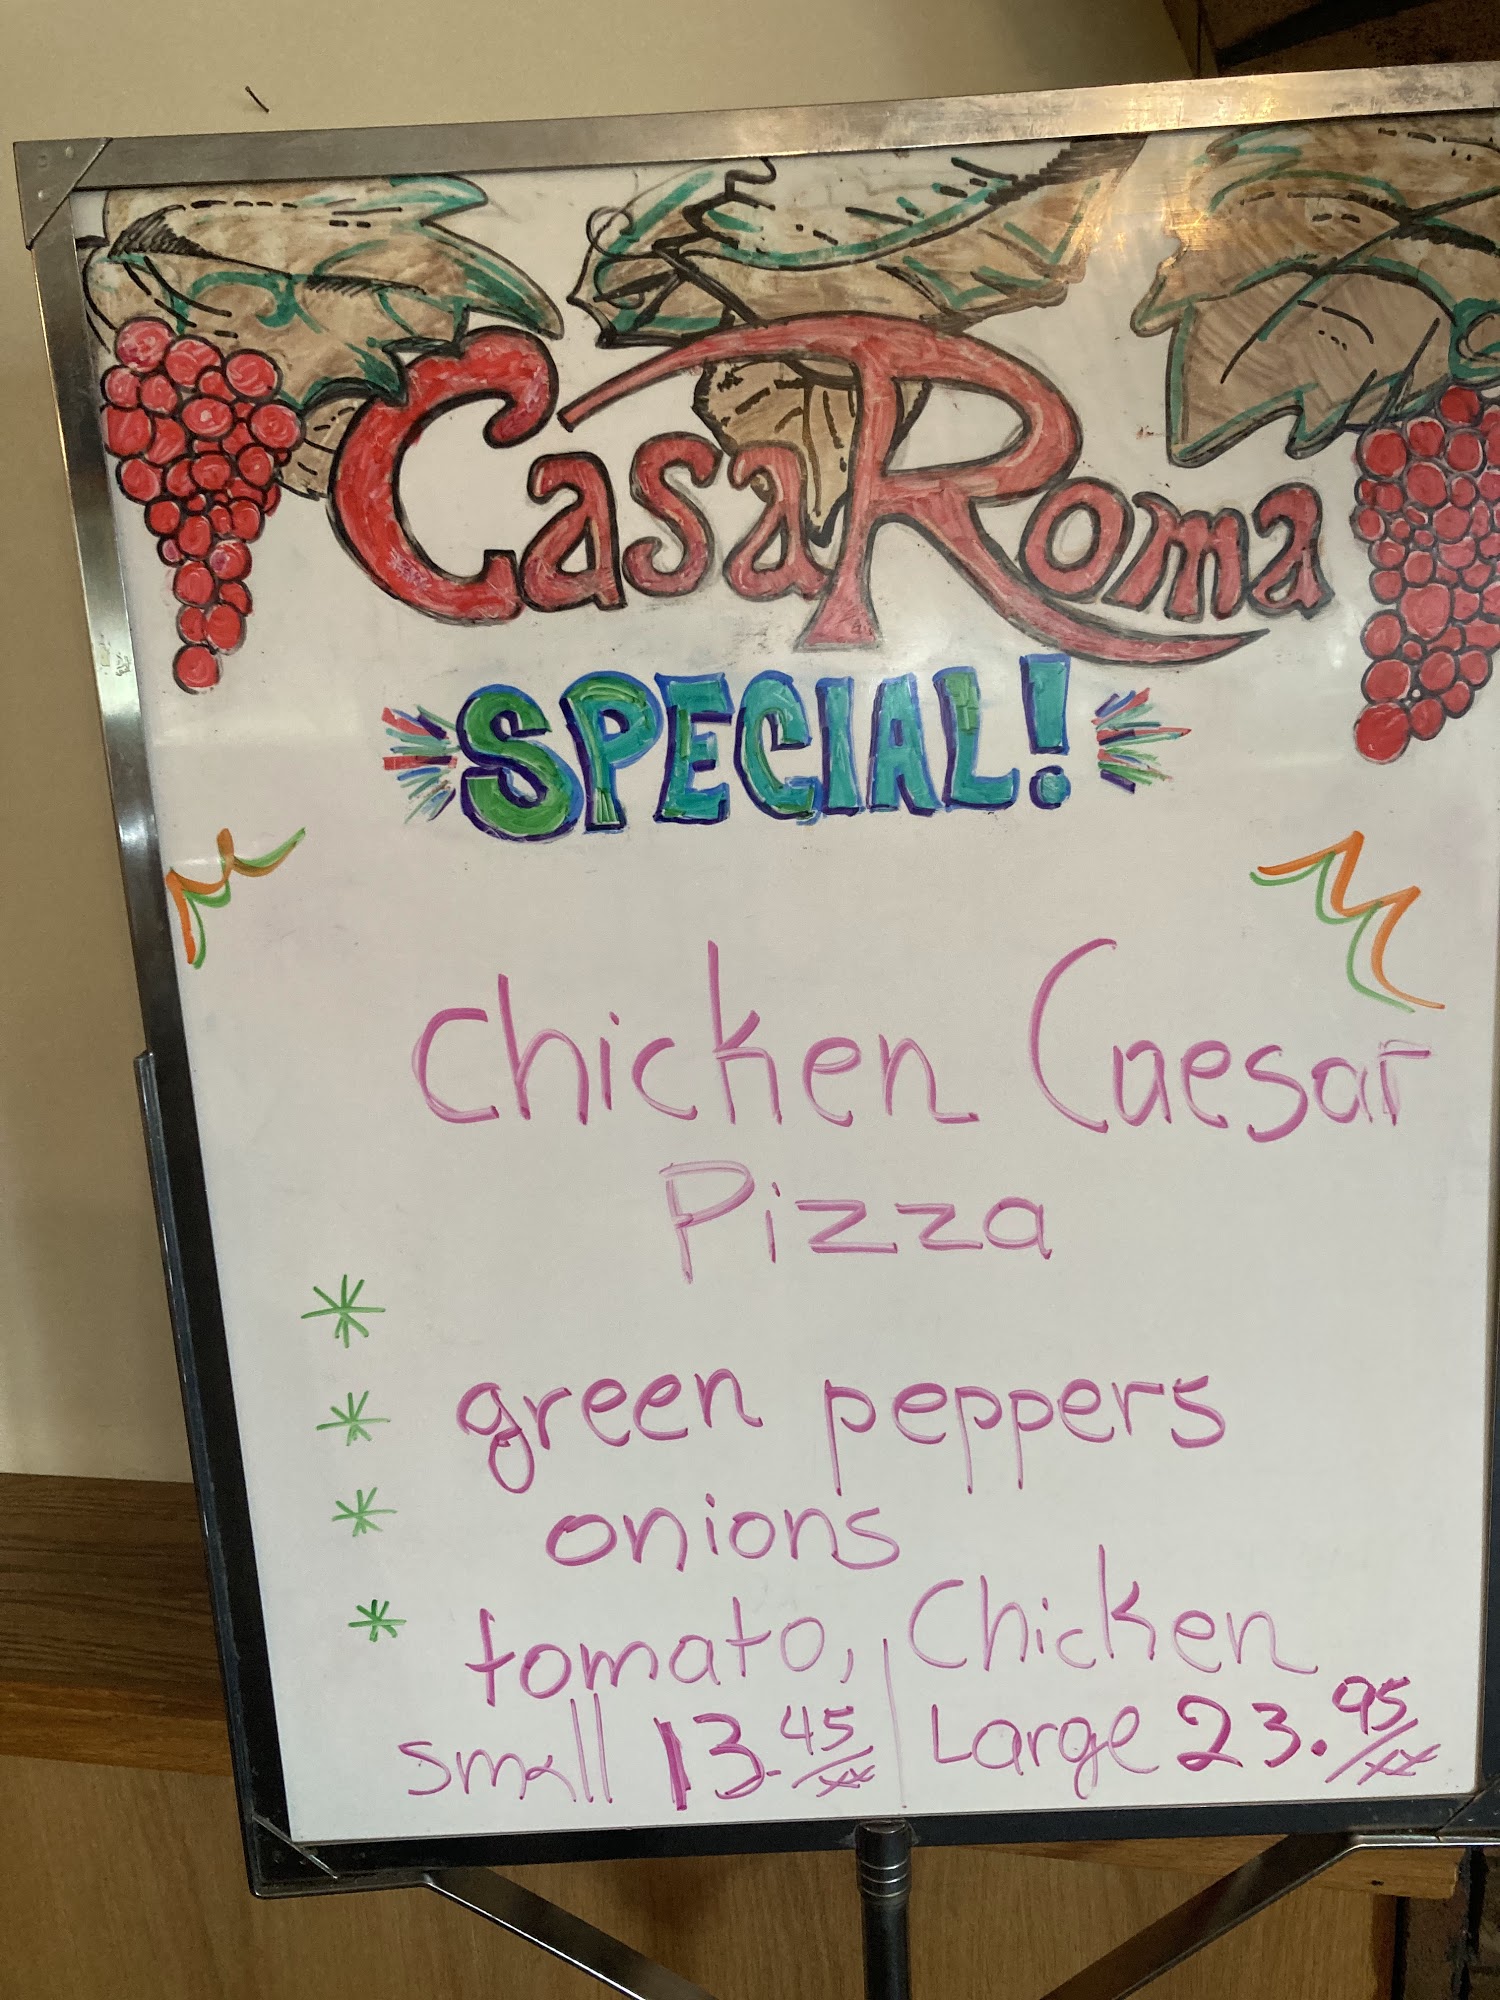 Casa Roma
SPECIAL!
Chicken Caesar
Pizza
*
* green peppers
* onions
* tomato, Chicken
small 13.45/xx | Large 23.95/xx